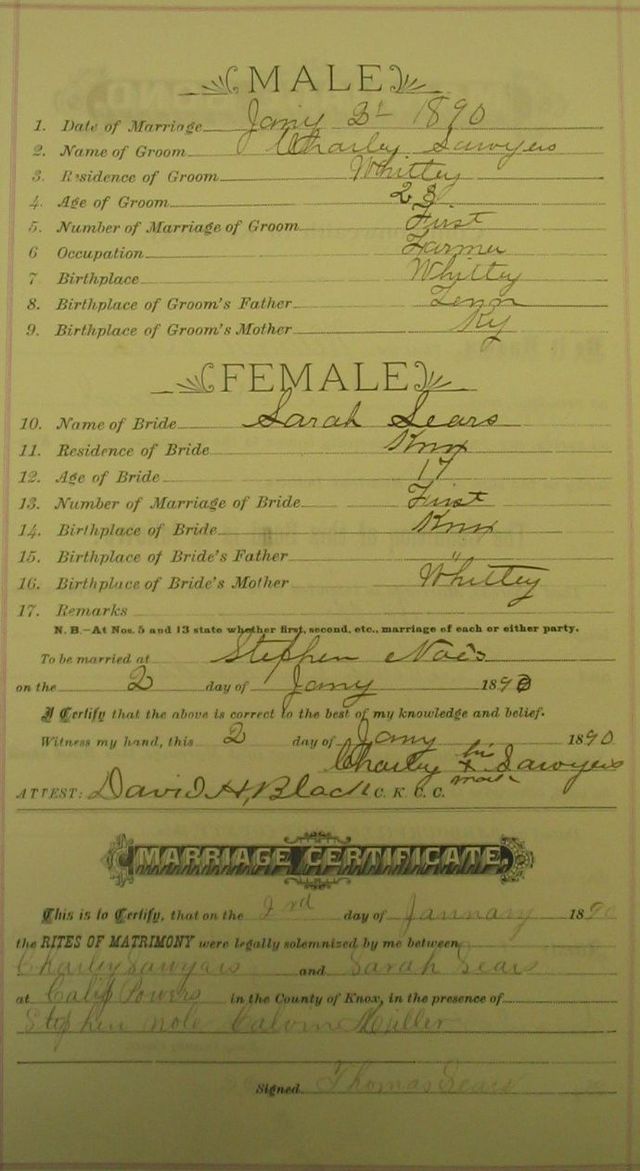 MALE
1. Date of Marriage Jany 2d 1890
2. Name of Groom Charley Sawyers
3. Residence of Groom Whitley
4. Age of Groom 23
5. Number of Marriage of Groom First
6 Occupation Farmer
7 Birthplace Whitley
8. Birthplace of Groom's Father Tenn
9. Birthplace of Groom's Mother Ky
FEMALE
10. Name of Bride Sarah Sears
11. Residence of Bride Knox
12. Age of Bride 17
13. Number of Marriage of Bride First
14. Birthplace of Bride Knox
15. Birthplace of Bride's Father "
16. Birthplace of Bride's Mother Whitley
17. Remarks
N. B.—At Nos. 5 and 13 state whether first, second, etc., marriage of each or either party.
To be married at Stephen Noe's
on the 2 day of Jany 1890
I Certify that the above is correct to the best of my knowledge and belief.
Witness my hand, this 2 day of Jany 1890
Charley his x mark Sawyers
ATTEST: David H. Black C. K. C. C.
MARRIAGE CERTIFICATE
This is to Certify, that on the 2rd day of January 1890
the RITES OF MATRIMONY were legally solemnized by me between
Charley Sawyars and Sarah Sears
at Calip Powers in the County of Knox, in the presence of
Stephen Nole Calvin Miller
Signed Thomas Sears